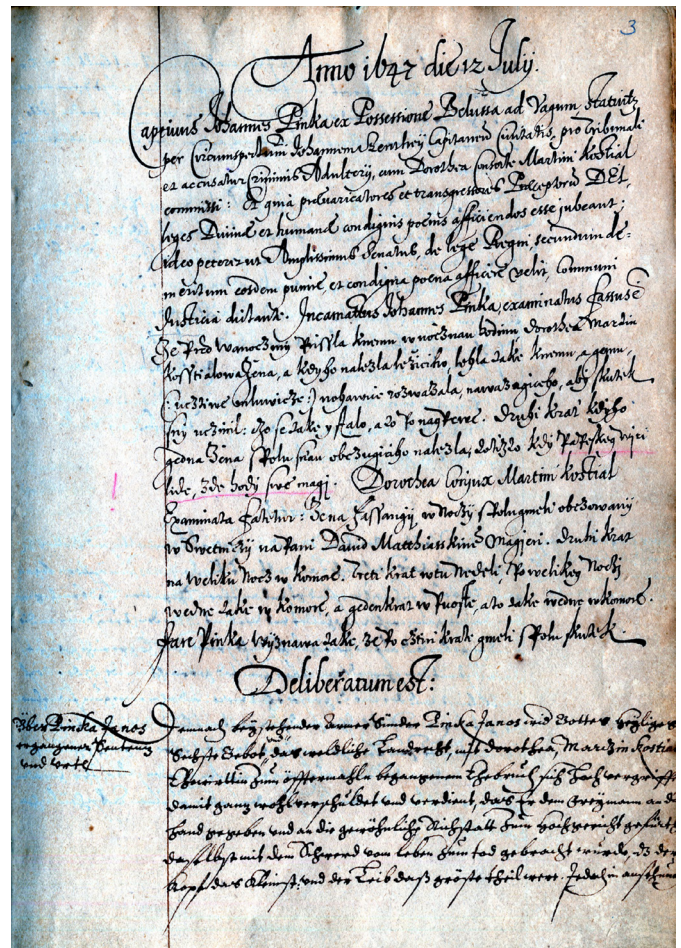 3
Anno 1647 die 12 July.
Captivus Johannes Pinka ex Possessione Belussa ad Vagum
per Circumspectum Johannem Capitaneum Civitatis, pro Tribunali
et accusatur Criminis Adultery, cum Dorothea consorte Martini Kostial
commissi: Et quia praevaricatores et transgressores Praeceptoru DEI,
leges Divinae et humanae condignis poenis afficiendos esse jubeant;
ideo petere ut Amplissimus Senatus, de lege Regni, secundum de-
meritum eosdem punire, et condigna poena afficere velit, communi
Justicia dictante. Johannes Pinka, examinatus fassus e
Ze Pred Wanoczmy Prissla knemu w noczny hodinu Dorothea Martin
kosstialowa Zena, a kdyho nalezla leziciho, lehla take knemu, a gemu,
nohawice rozwazala, aby skutek
sny uczinil: czo se take y stalo, a to Po nagprwe. Druhi krat kdyho
gedna Zena spolu nalezla,
lide, zde hody swe magj. Dorothea Conjux Martini Kostial
Examinata fatetur: Zena w Noczy spolu gmeli
na Pani Dawid Matthiasskine Magjeri. Druhi krat
na Weliku Nocz w komore. Treti krat w tu Nedeli, Po welikey Noczy
wedne take w komore, a geden krat w Puoste, a to take wedne w komore.
Pinka Wyznawa take, ze Po krate gmeli spolu skutek.
Deliberatum est:
Über Pinka Janos
ergangener Sentenz
und Urtl
Demnach beystehender armer Sünder Pinka Janos wid Gottes heylige
Sechste Gebot, das weldliche Landrecht, mit Dorothea, Martzin Kostia
Eheweib zum öfftermahln begangenem Ehebruch sich hoch vergriffe
damit ganz wohl verschuldet und verdient, das Er dem Freymann an d
Hand gegeben und an die gewöhnliche Richstatt zum Hochgericht gefürt
daselbst mit dem Schwerd vom Leben zum Tod gebracht würde, dz der
Kopf das Kleinst, und der Leib daß gröste theil were. Jedoch in